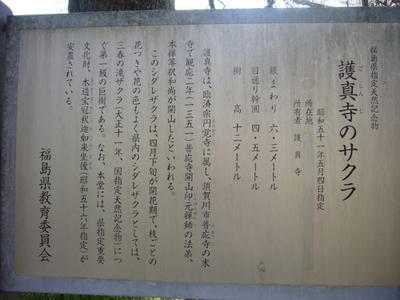 福島県指定天然記念物
護真寺のサクラ
昭和五十一年五月四日指定
所在地
所有者 護真寺
根まわり 六・三メートル
目通り幹囲 四・五メートル
樹高 十二メートル
護真寺は、臨済宗円覚寺に属し、須賀川市普応寺の末
寺で観応二年(一三五一)普応寺開山印元禅師の法弟、
本禅等釈和尚が開山したといわれる。
このシダレザクラは、四月下旬が開花期で、枝ごとの
花つきや花の色もよく県内のシダレザクラとしては、
三春の滝ザクラ(大正十一年、国指定天然記念物)につ
ぐ第一級の巨樹である。なお、本堂には、県指定重要
文化財、木造宝冠釈迦如来坐像(昭和五十六年指定)が
安置されている。
福島県教育委員会